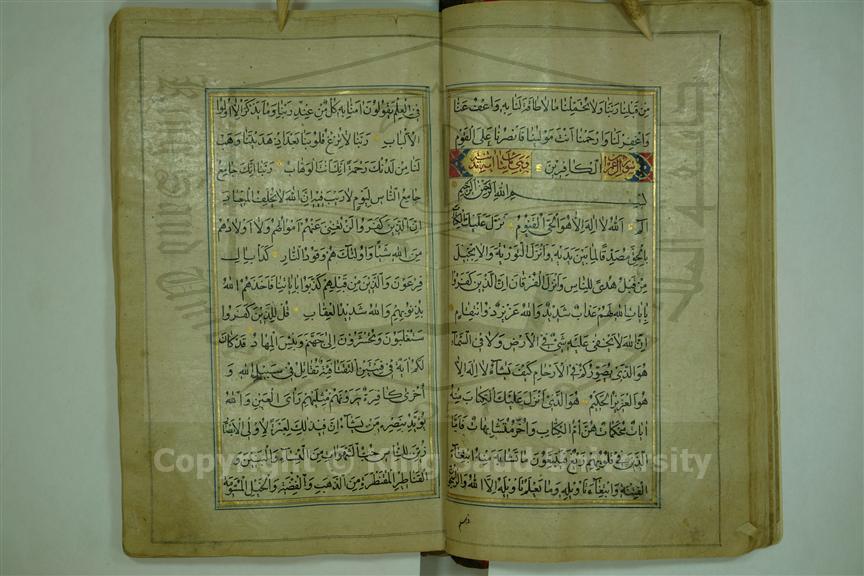 من قبلنا ربنا ولا تحملنا ما لا طاقة لنا به واعف عنا
واغفر لنا وارحمنا انت مولينا فانصرنا على القوم
الكافرين
بسم الله الرحمن الرحيم
الم الله لا اله الا هو الحي القيوم نزل عليك الكتاب
بالحق مصدقا لما بين يديه وانزل التورية والانجيل
من قبل هدى للناس وانزل الفرقان ان الذين كفروا
بايات الله لهم عذاب شديد والله عزيز ذو انتقام
ان الله لا يخفى عليه شئ في الارض ولا في السماء
هو الذي يصوركم في الارحام كيف يشاء لا اله الا
هو العزيز الحكيم هو الذي انزل عليك الكتاب منه
ايات محكمات هن ام الكتاب واخر متشابهات فاما
الذين في قلوبهم زيغ فيتبعون ما تشابه منه ابتغاء
الفتنة وابتغاء تاويله وما يعلم تاويله الا الله والراسخون
في العلم يقولون امنا به كل من عند ربنا وما يذكر الا اولوا
الالباب ربنا لا تزغ قلوبنا بعد اذ هديتنا وهب
لنا من لدنك رحمة انك انت الوهاب ربنا انك جامع
جامع الناس ليوم لا ريب فيه ان الله لا يخلف الميعاد
ان الذين كفروا لن تغني عنهم اموالهم ولا اولادهم
من الله شيئا واولئك هم وقود النار كداب ال
فرعون والذين من قبلهم كذبوا باياتنا فاخذهم الله
بذنوبهم والله شديد العقاب قل للذين كفروا
ستغلبون وتحشرون الى جهنم وبئس المهاد قد كان
لكم اية في فئتين التقتا فئة تقاتل في سبيل الله و
اخرى كافرة يرونهم مثليهم راى العين والله
يؤيد بنصره من يشاء ان في ذلك لعبرة لاولى الابصار
زين للناس حب الشهوات من النساء والبنين و
القناطير المقنطرة من الذهب والفضة والخيل المسومة
Copyright © King Saud University